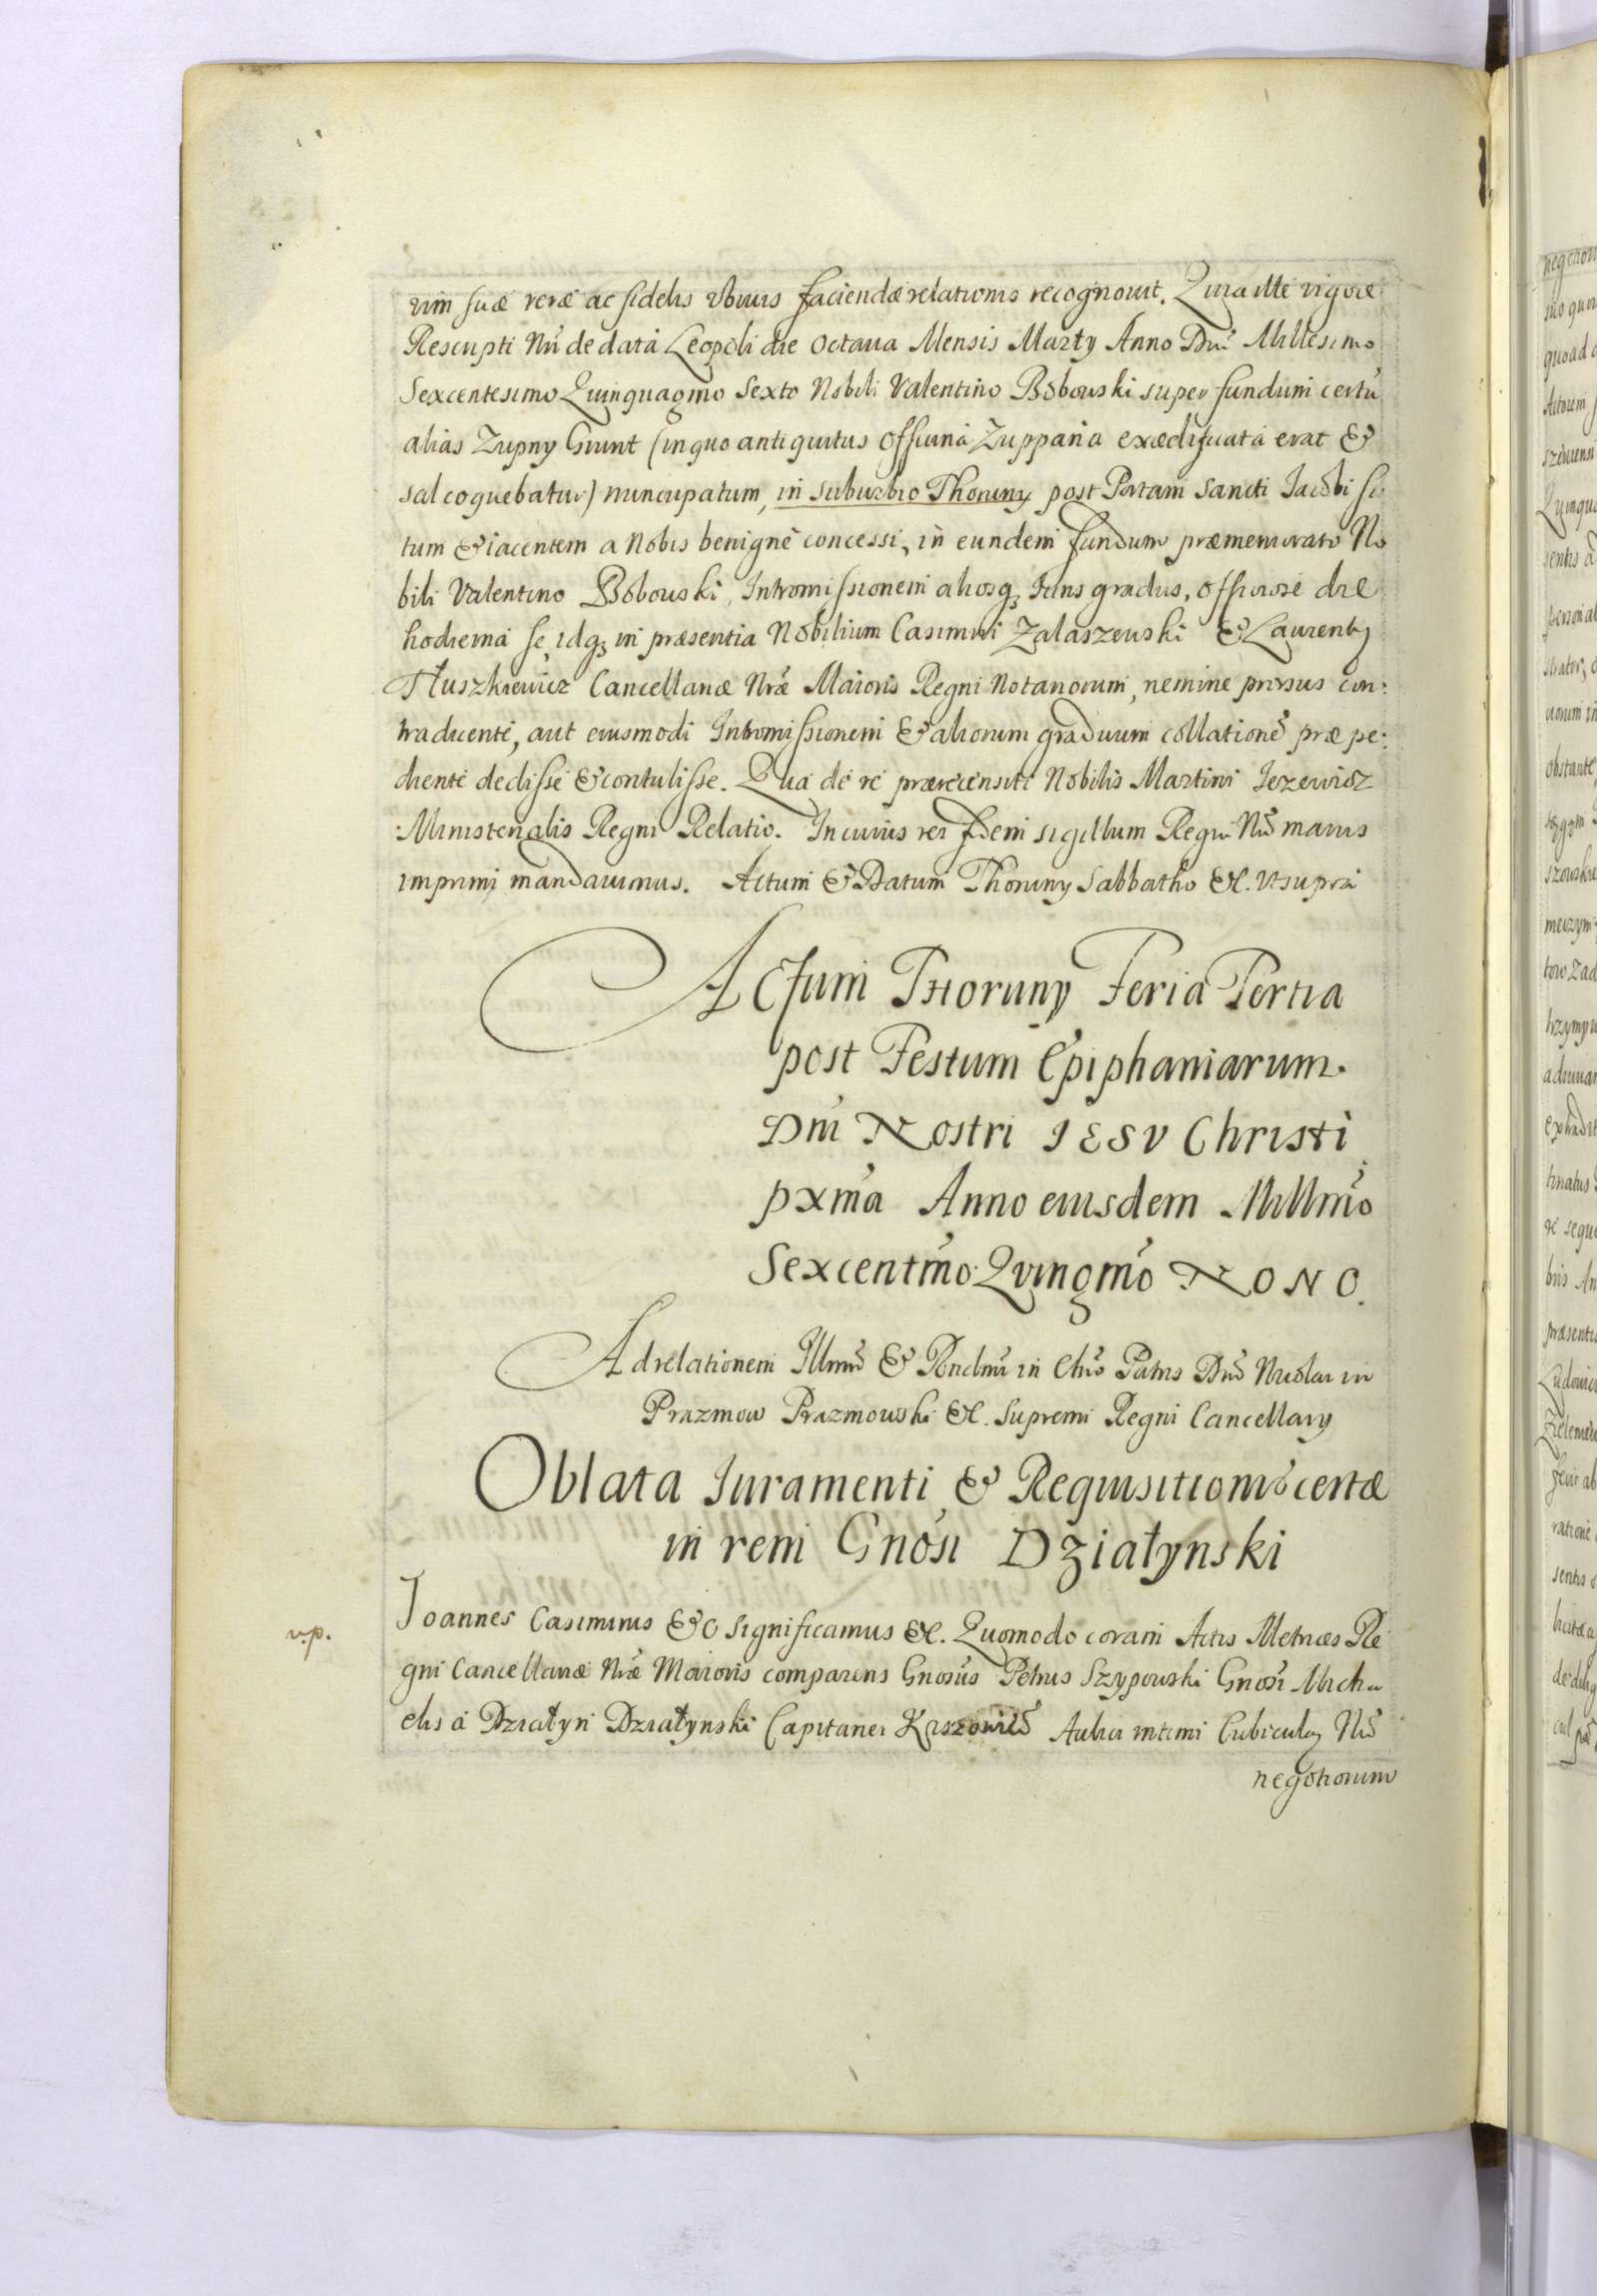 vim suæ veræ ac fidelis ubivis faciendæ relationis recognovit. Quia ille vigore
Rescripti Nri de data Leopoli die Octava Mensis Marty Anno Dni Millesimo
Sexcentesimo Quinquagmo Sexto Nobili Valentino Bobowski super fundum certu
alias Zupny Grunt (in quo antiquitus Officina Zupparia exædificata erat &
sal coquebatur) nuncupatum, in suburbio Thoruny post Portam Sancti Iacobi si
tum & iacentem a Nobis benignè concessi, in eundem fundum præmemorato No
bili Valentino Bobowski, Intromissionem aliosq Iuris gradus, officiose die
hodierna se, idq in præsentia Nobilium Casimiri Zalaszewski & Laurenty
Tłuszkiewicz Cancellariæ Nræ Maioris Regni Notariorum, nemine prorsus con:
tradicente, aut eiusmodi Intromissionem & aliorum graduum collatione præ pe:
diente dedisse & contulisse. Qua de re prærecensiti Nobilis Martini Iezewicz
Ministerialis Regni Relatio. In cuius rei fidem sigillum Regni Nri maius
imprimi mandavimus. Actum & Datum Thoruny Sabbatho &c. ut supra
Actum Thoruny Feria Tertia
post Festum Epiphaniarum
Dni Nostri IESV Christi
pxma Anno eiusdem Millmo
Sexcentmo Quingmo NONO.
Ad relationem Illmi & Rndmi in Chro Patris Dni Nicolai in
Prazmow Prazmowski &c. Supremi Regni Cancellary
Oblata Iuramenti & Requisitionis certæ
in rem Gnosi Działynski
v.p.
Ioannes Casimirus &c significamus &c. Quomodo coram Actis Metrices Re
gni Cancellariæ Nræ Maioris comparens Gnosus Petrus Szypowski Gnosi Micha
elis a Działyn Działynski Capitanei Aulici intimi Cubiculy Nri
negotiorum